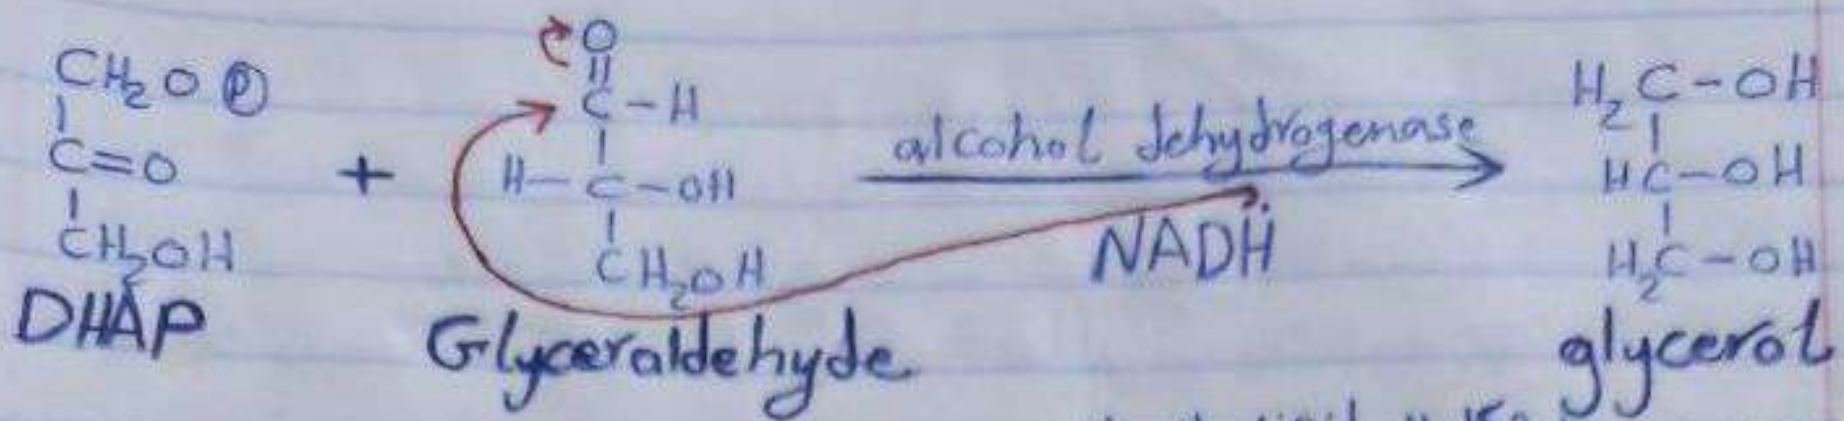 CH₂O Ⓟ
C=O
CH₂OH
DHAP
+
O
C-H
H-C-OH
CH₂OH
Glyceraldehyde
alcohol dehydrogenase
NADH
H₂C-OH
HC-OH
H₂C-OH
glycerol